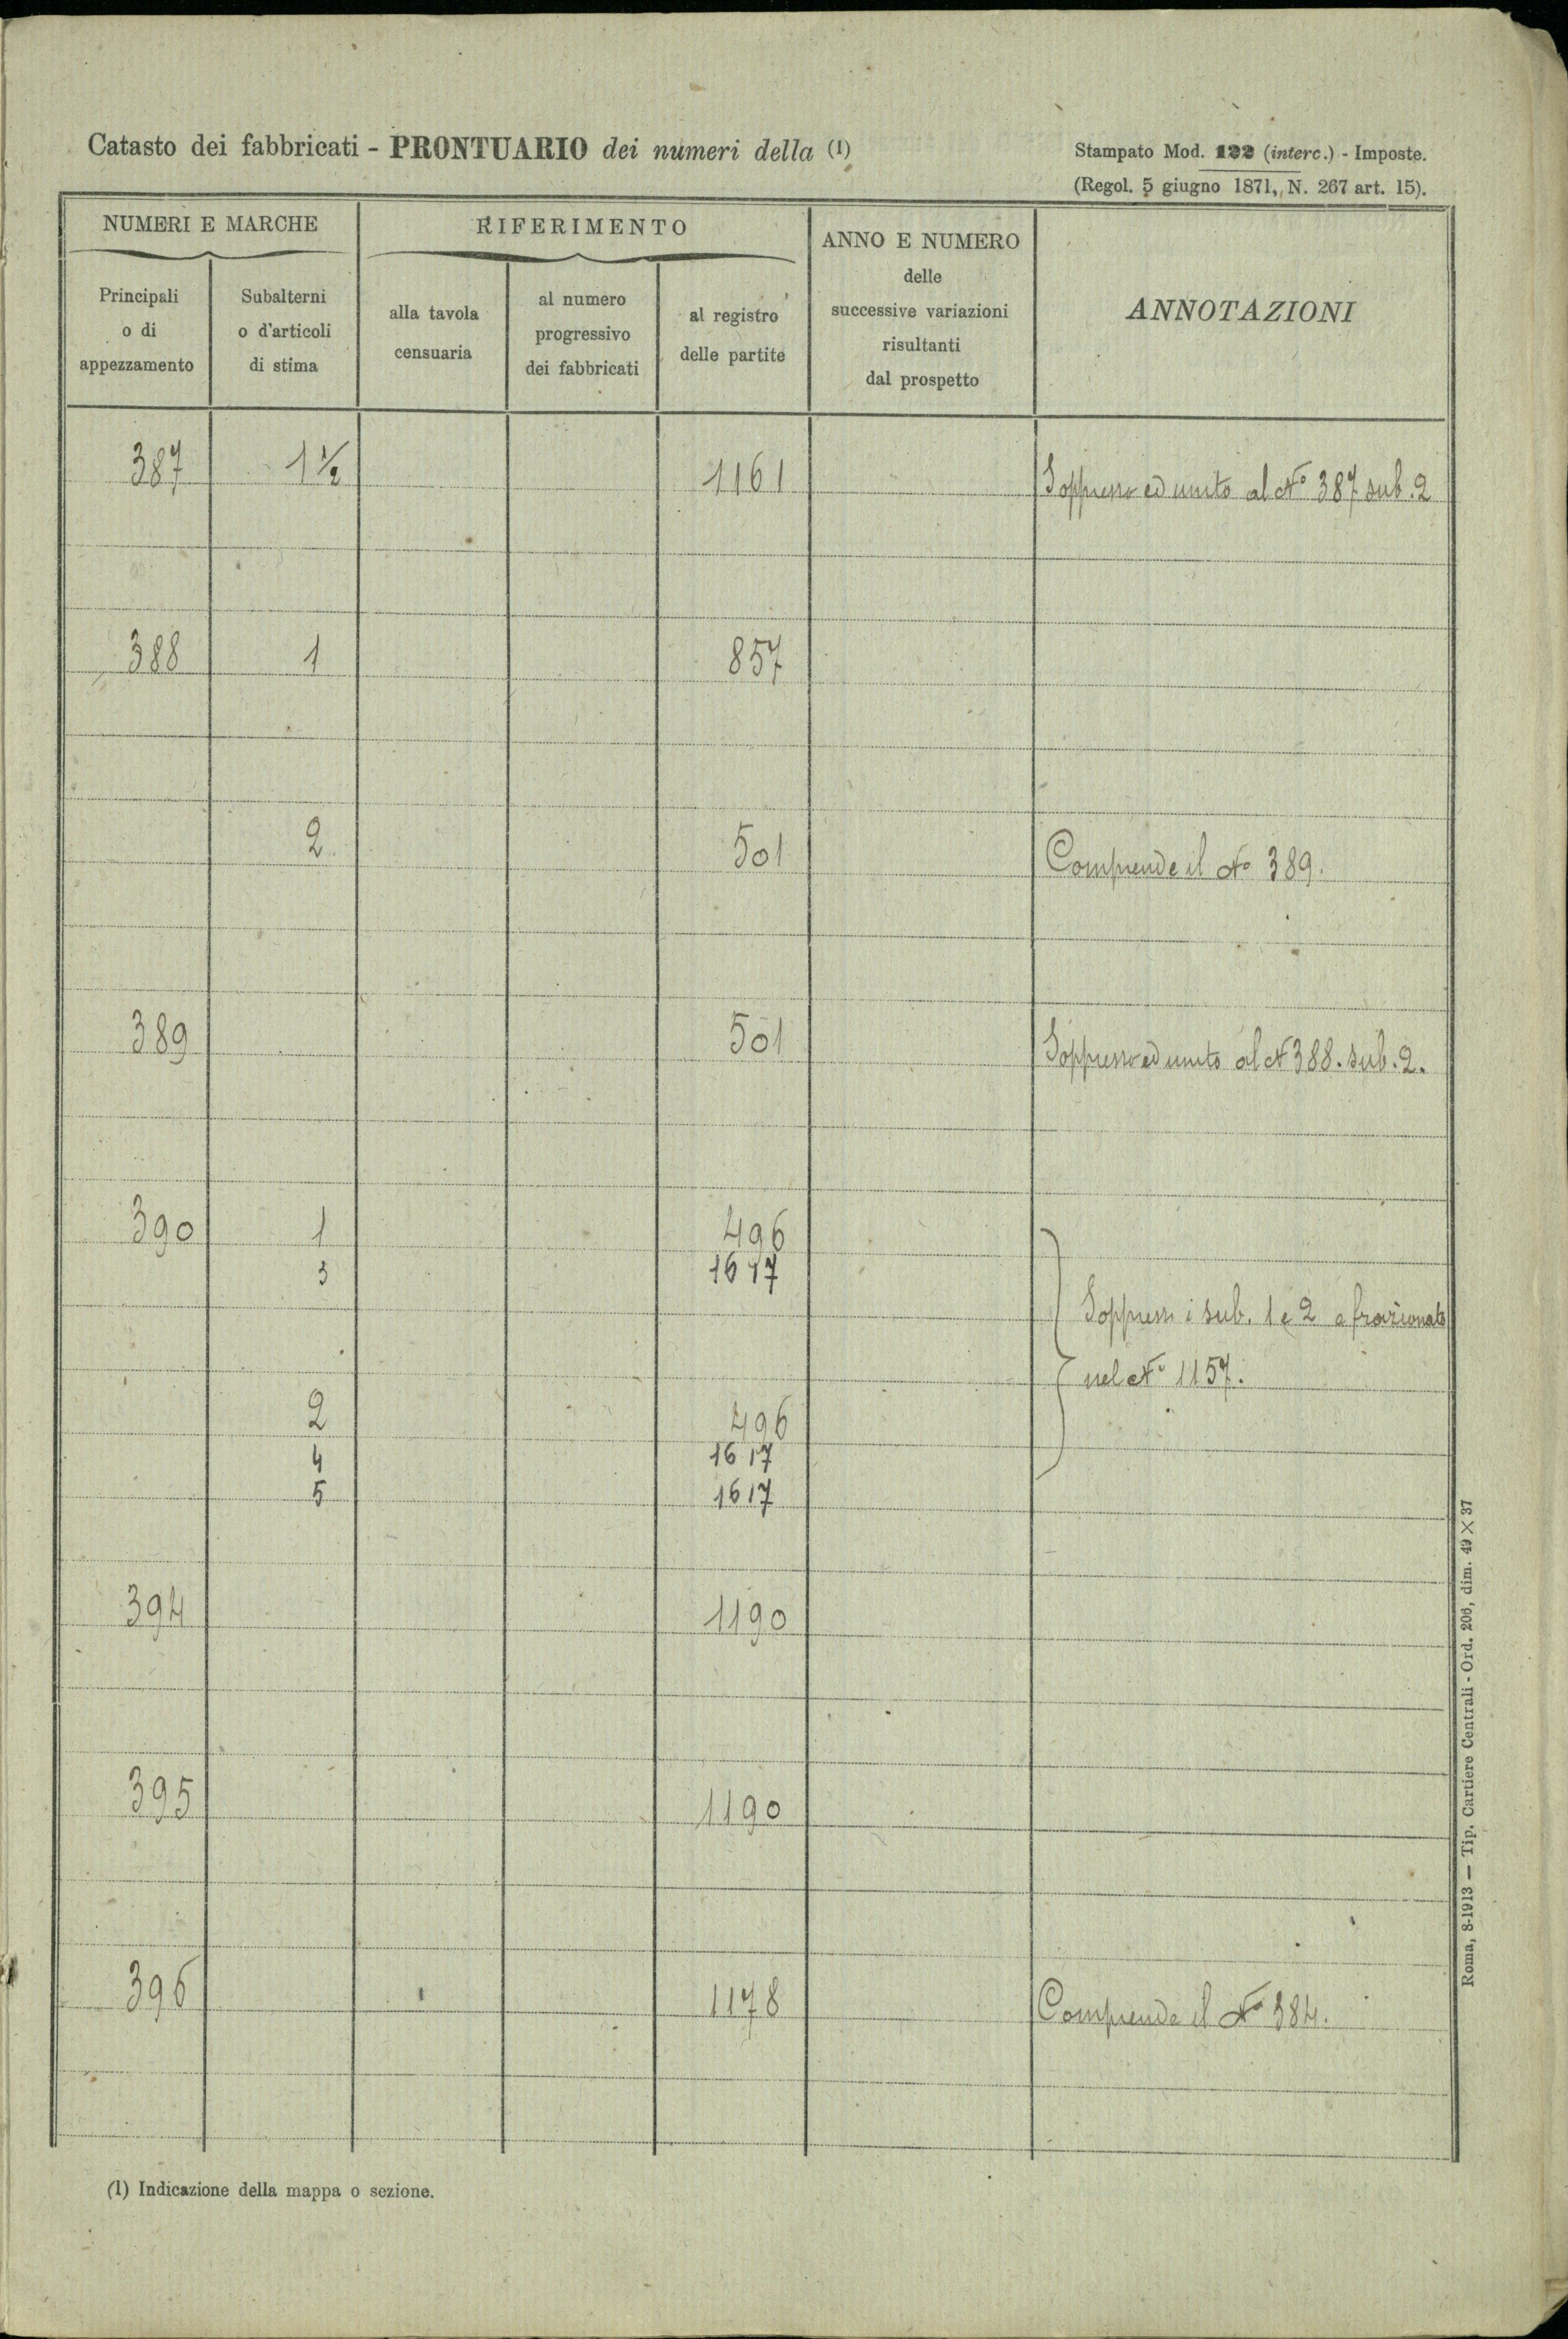 Catasto dei fabbricati - PRONTUARIO dei numeri della (1)
Stampato Mod. 122 (interc.) - Imposte.
(Regol. 5 giugno 1871, N. 267 art. 15).
NUMERI E MARCHE
RIFERIMENTO
ANNO E NUMERO
delle
successive variazioni
risultanti
dal prospetto
ANNOTAZIONI
Principali
o di
appezzamento
Subalterni
o d'articoli
di stima
alla tavola
censuaria
al numero
progressivo
dei fabbricati
al registro
delle partite
387 1 1/2 1161 Soppresso ed unito al No 387 sub. 2
388 1 857
2 501 Comprende il No 389.
389 501 Soppresso ed unito al N 388. sub. 2.
390 1 496
3 1617
Soppressi i sub. 1 e 2 e frazionato
nel No 1157.
2 496
4 1617
5 1617
394 1190
395 1190
396 1178 Comprende il No 384.
(1) Indicazione della mappa o sezione.
Roma, 8-1913 — Tip. Cartiere Centrali - Ord. 206, dim. 49 × 37